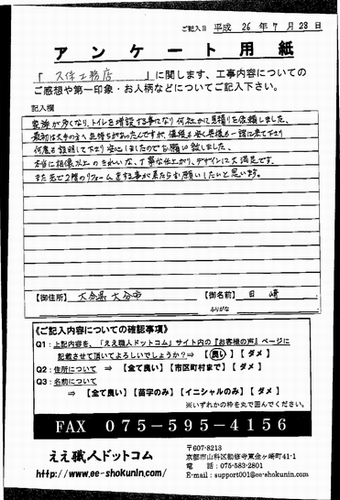 ご記入日 平成 26年 7月 28日
アンケート用紙
「 久保工務店 」に関します、工事内容についての
ご感想や第一印象・お人柄などについてご記入下さい。
記入欄
家族が多くなり、トイレを増設する事になり何社かに見積りを依頼しました。
最初は大手の方へ気持ちがあったんですが、
何度も説明して下さり安心しましたのでお願い致しました。
本当に想像以上のきれいな、丁寧な仕上がり、デザインに大満足です。
また先で2階のリフォームをする事が来たらお願いしたいと思います。
【御住所】 大分県大分市
【御名前】 田崎
ふりがな
《ご記入内容についての確認事項》
Q1:上記内容を、「ええ職人ドットコム」サイト内の『お客様の声』ページに
記載させて頂いてよろしいでしょうか?⇒ 【 良い 】 【 ダメ 】
Q2:住所について ⇒ 【 全て良い 】【 市区町村まで 】【 ダメ 】
Q3:名前について
⇒ 【 全て良い 】【 苗字のみ 】【 イニシャルのみ 】【 ダメ 】
※いずれかの枠を丸で囲んでください。
FAX 075-595-4156
ええ職人ドットコム
http://www.ee-shokunin.com/
〒607-8213
京都市山科区勧修寺東金ヶ崎町41-1
電話:075-583-2801
E-mail:support001@ee-shokunin.com